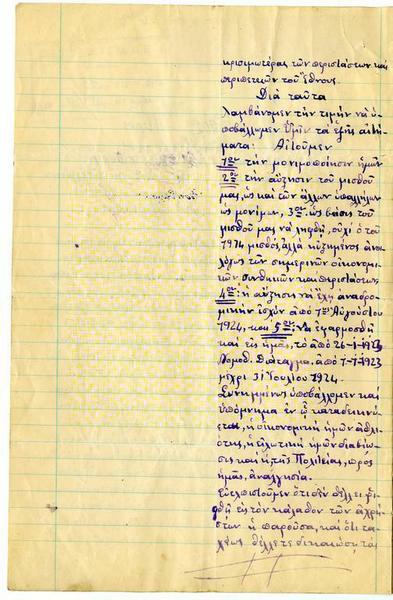 κρισιμωτέρας τῶν περιστάσεων καὶ
περιπετειῶν τοῦ Ἔθνους.
Διὰ ταῦτα
Λαμβάνομεν τὴν τιμὴν νὰ ὑ-
ποβάλλωμεν Ὑμῖν τὰ ἑξῆς αἰτή-
ματα: Αἰτοῦμεν
1ον τὴν μονιμοποίησιν ἡμῶν
2ον τὴν αὔξησιν τοῦ μισθοῦ
μας, ὡς καὶ τῶν ἄλλων ὑπαλλήλων
ὡς μονίμων, 3ον ὡς βάσις τοῦ
μισθοῦ μας νὰ ληφθῇ, οὐχὶ ὁ τοῦ
1914 μισθός, ἀλλὰ ηὐξημένος ἀνα-
λόγως τῶν σημερινῶν οἰκονομι-
κῶν συνθηκῶν καὶ περιστάσεων
4ον ἡ αὔξησι νὰ ἔχῃ ἀναδρο-
μικὴν ἰσχὺν ἀπὸ 1ης Αὐγούστου
1924, καὶ 5ον Νὰ ἐφαρμοσθῇ
καὶ εἰς ἡμᾶς, τὸ ἀπὸ 26-1-1923
Νομοθ. Διάταγμα. ἀπὸ 1-1-1923
μέχρι 31 Ἰουλίου 1924.
Συνημμένως ὑποβάλλομεν καὶ
ὑπόμνημα ἐν ᾧ καταδεικνύ-
εται, ἡ οἰκονομικὴ ἡμῶν ἀθλι-
ότης, ἡ εἱλωτικὴ ἡμῶν διαβίω-
σις καὶ ἡ τῆς Πολιτείας, πρὸς
ἡμᾶς, ἀναλγησία.
Εὐελπιστοῦμεν ὅτι δὲν θέλει ῥι-
φθῇ εἰς τὸν κάλαθον τῶν ἀχρή-
στων ἡ παροῦσα, καὶ ὅτι τα-
χέως θέλετε δικαιώσῃ τὰς